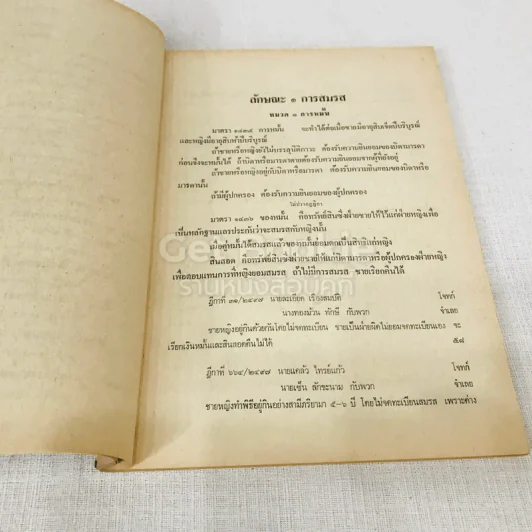 ลักษณะ ๑ การสมรส
หมวด ๑ การหมั้น
มาตรา ๑๔๓๕ การหมั้น จะทำได้ต่อเมื่อชายมีอายุสิบเจ็ดปีบริบูรณ์
และหญิงมีอายุสิบห้าปีบริบูรณ์
ถ้าชายหรือหญิงยังไม่บรรลุนิติภาวะ ต้องรับความยินยอมของบิดามารดา
ก่อนจึงจะหมั้นได้ ถ้าบิดาหรือมารดาตายต้องรับความยินยอมจากผู้ที่ยังอยู่
ถ้าชายหรือหญิงอยู่กับบิดาหรือมารดา ต้องรับความยินยอมของบิดาหรือ
มารดานั้น
ถ้ามีผู้ปกครอง ต้องรับความยินยอมของผู้ปกครอง
ไม่ปรากฏฎีกา
มาตรา ๑๔๓๖ ของหมั้น คือทรัพย์สินซึ่งฝ่ายชายให้ไว้แก่ฝ่ายหญิงเพื่อ
เป็นหลักฐานและประกันว่าจะสมรสกับหญิงนั้น
เมื่อคู่หมั้นได้สมรสแล้วของหมั้นย่อมตกเป็นสิทธิแก่หญิง
สินสอด คือทรัพย์สินซึ่งฝ่ายชายให้แก่บิดามารดาหรือผู้ปกครองฝ่ายหญิง
เพื่อตอบแทนการที่หญิงยอมสมรส ถ้าไม่มีการสมรส ชายเรียกคืนได้
ฎีกาที่ ๓๑/๒๔๙๗ นายละเอียด เรืองสมบัติ โจทก์
นางทองม้วน ทักษิ กับพวก จำเลย
ชายหญิงอยู่กินด้วยกันโดยไม่จดทะเบียน ชายเป็นฝ่ายผิดไม่ยอมจดทะเบียนเอง จะ
เรียกเงินหมั้นและสินสอดคืนไม่ได้ ๕๘
ฎีกาที่ ๖๖๔/๒๔๙๗ นายแคล้ว ไทรย์แก้ว โจทก์
นายเซ็น ลักขะนาม กับพวก จำเลย
ชายหญิงทำพิธีอยู่กินอย่างสามีภริยามา ๕-๖ ปี โดยไม่จดทะเบียนสมรส เพราะต่าง